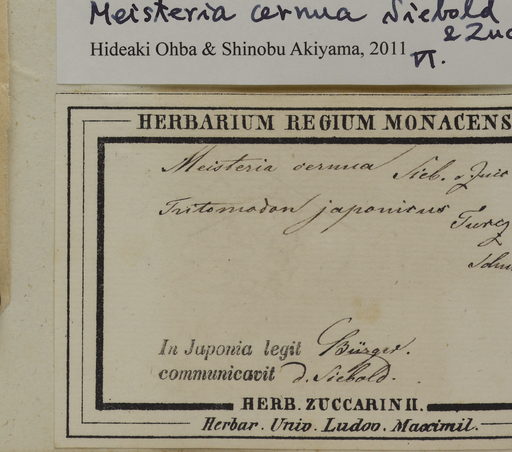 Meisteria cernua Siebold
& Zuc
Hideaki Ohba & Shinobu Akiyama, 2011
VI.
HERBARIUM REGIUM MONACENS
Meisteria cernua Sieb. & Zucc
Tritomodon japonicus Turcz
In Japonia legit Bürger.
communicavit d. Siebold.
HERB. ZUCCARINII.
Herbar. Univ. Ludov. Maximil.